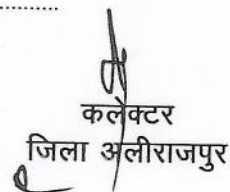 ....................
कलेक्टर
जिला अलीराजपुर